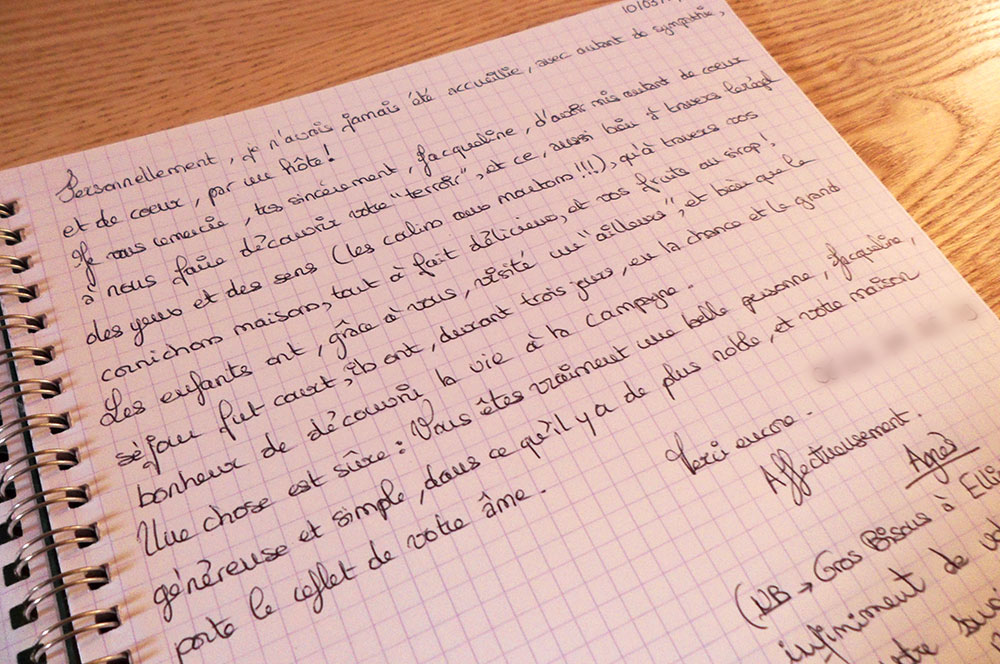 10/03/
Personnellement, je n'avais jamais été accueillie, avec autant de sympathie,
et de coeur, par un hôte!
Je vous remercie, très sincèrement, Jacqueline, d'avoir mis autant de coeur
à nous faire découvrir votre "terroir", et ce, aussi bien à travers le régal
des yeux et des sens (les calins aux moutons!!!), qu'à travers vos
cornichons maisons, tout à fait délicieux, et vos fruits au sirop!
Les enfants ont, grâce à vous, visité un "ailleurs", et bien que le
séjour fut court, ils ont, durant trois jours, eu la chance et le grand
bonheur de découvrir la vie à la campagne.
Une chose est sûre: Vous êtes vraiment une belle personne, Jacqueline,
généreuse et simple, dans ce qu'il y a de plus noble, et votre maison
porte le reflet de votre âme.
Merci encore.
Affectueusement.
Agnès
(NB → Gros Bisous à
infiniment de